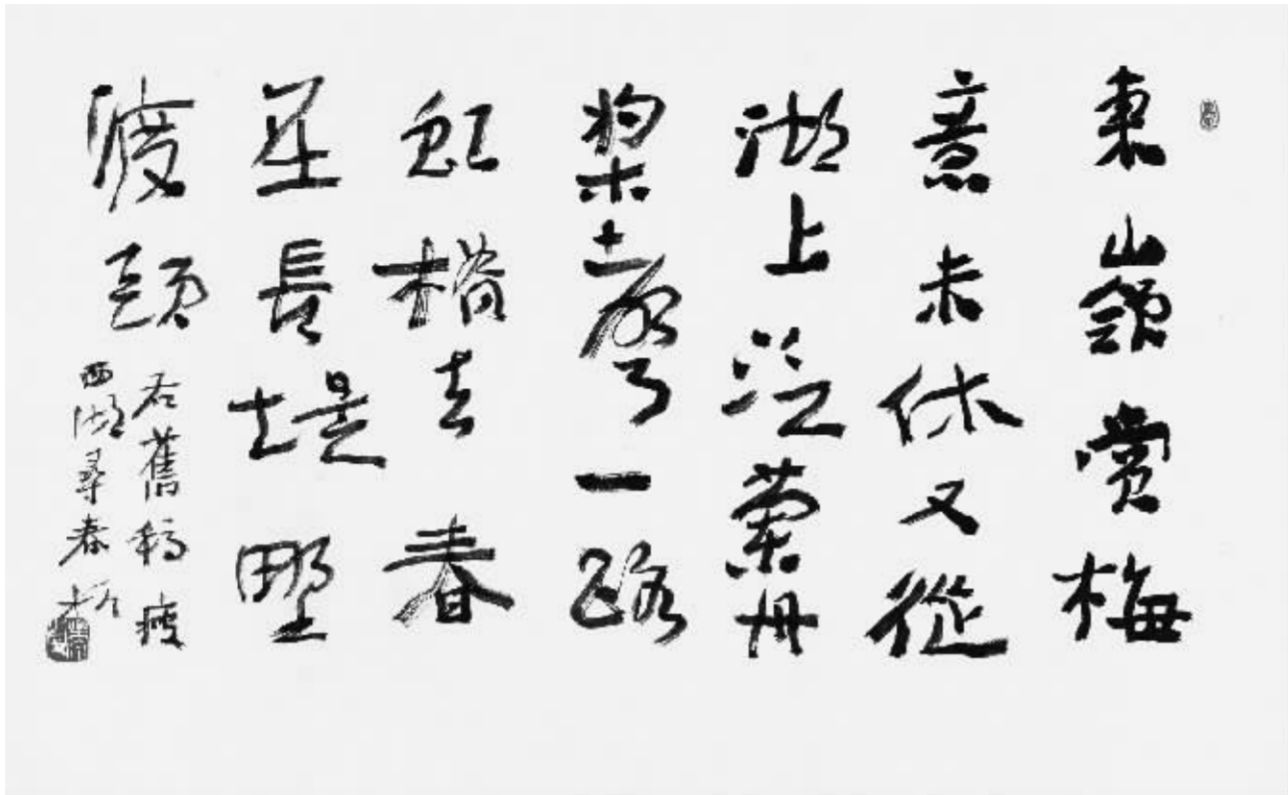 東嶺賞梅
意未休又從
湖上泛蘭舟
槳聲一路
虹橋去春
在長堤野
渡頭
右舊稿瘦
西湖尋春